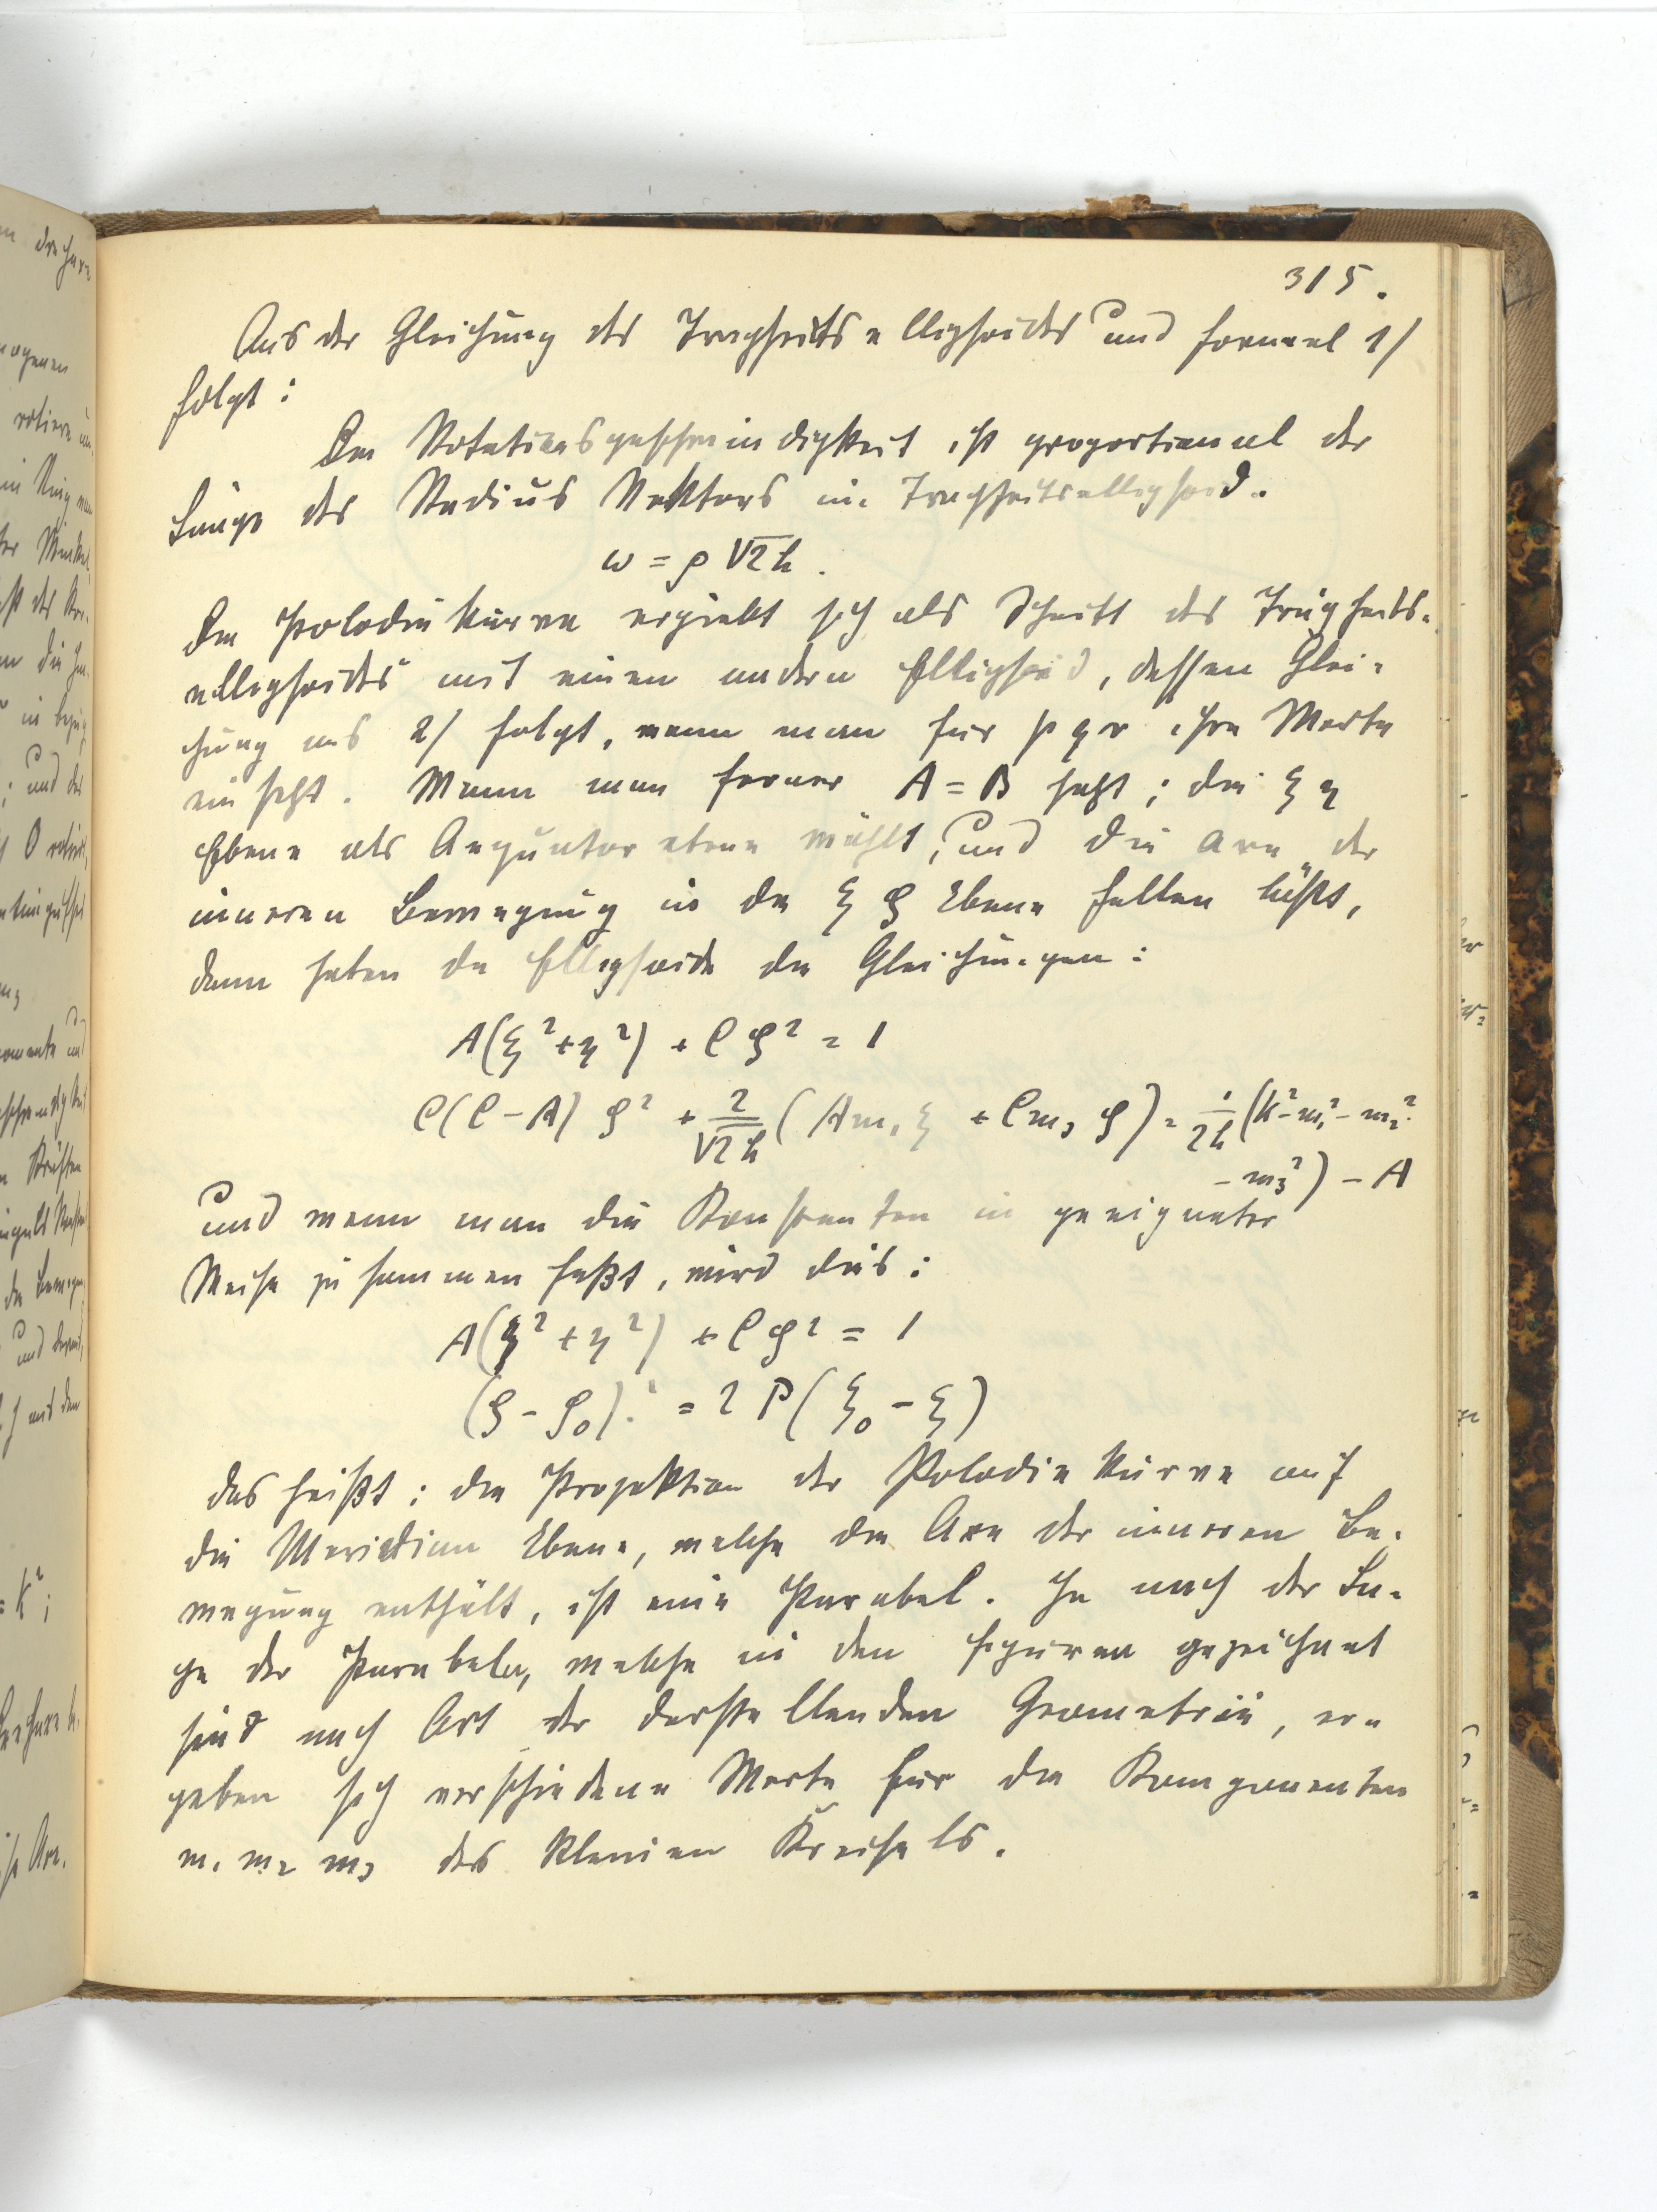 315.
Aus der Gleichung des Trägheitsellipsoides und Formel 1)
folgt:
Die Rotationsgeschwindigkeit ist proportional der
Länge des Radius Vektors im Trägheitsellipsoid.
ω = ρ √2h.
Die Polodiekurve ergiebt sich als Schnitt des Trägheits-
ellipsoides mit einem andern Ellipsoid, dessen Glei-
chung aus 2) folgt, wenn man für p q r ihre Werte
einsetzt. Wenn man ferner A = B setzt; die ξ η
Ebene als Aequatorebene wählt, und die Axe der
inneren Bewegung in die ξ ζ Ebene fallen läßt,
dann haben die Ellipsoide die Gleichungen:
A(ξ² + η²) + C ζ² = 1
C(C - A) ζ² + 2/√2h (A m₁ ξ + C m₃ ζ) = 1/2h (k² - m₁² - m₂²
- m₃²) - A
und wenn man die Konstanten in geeigneter
Weise zusammen faßt, wird dies:
A(ξ² + η²) + C ζ² = 1
(ζ - ζ₀)² = 2 P(ξ₀ - ξ)
das heißt: die Projektion der Polodiekurve auf
die Meridian Ebene, welche die Axe der inneren Be-
wegung enthält, ist eine Parabel. Je nach der La-
ge der Parabeln, welche in den Figuren gezeichnet
sind nach Art der darstellenden Geometrie, er-
geben sich verschiedene Werte für die Komponenten
m₁ m₂ m₃ des kleinen Kreisels.